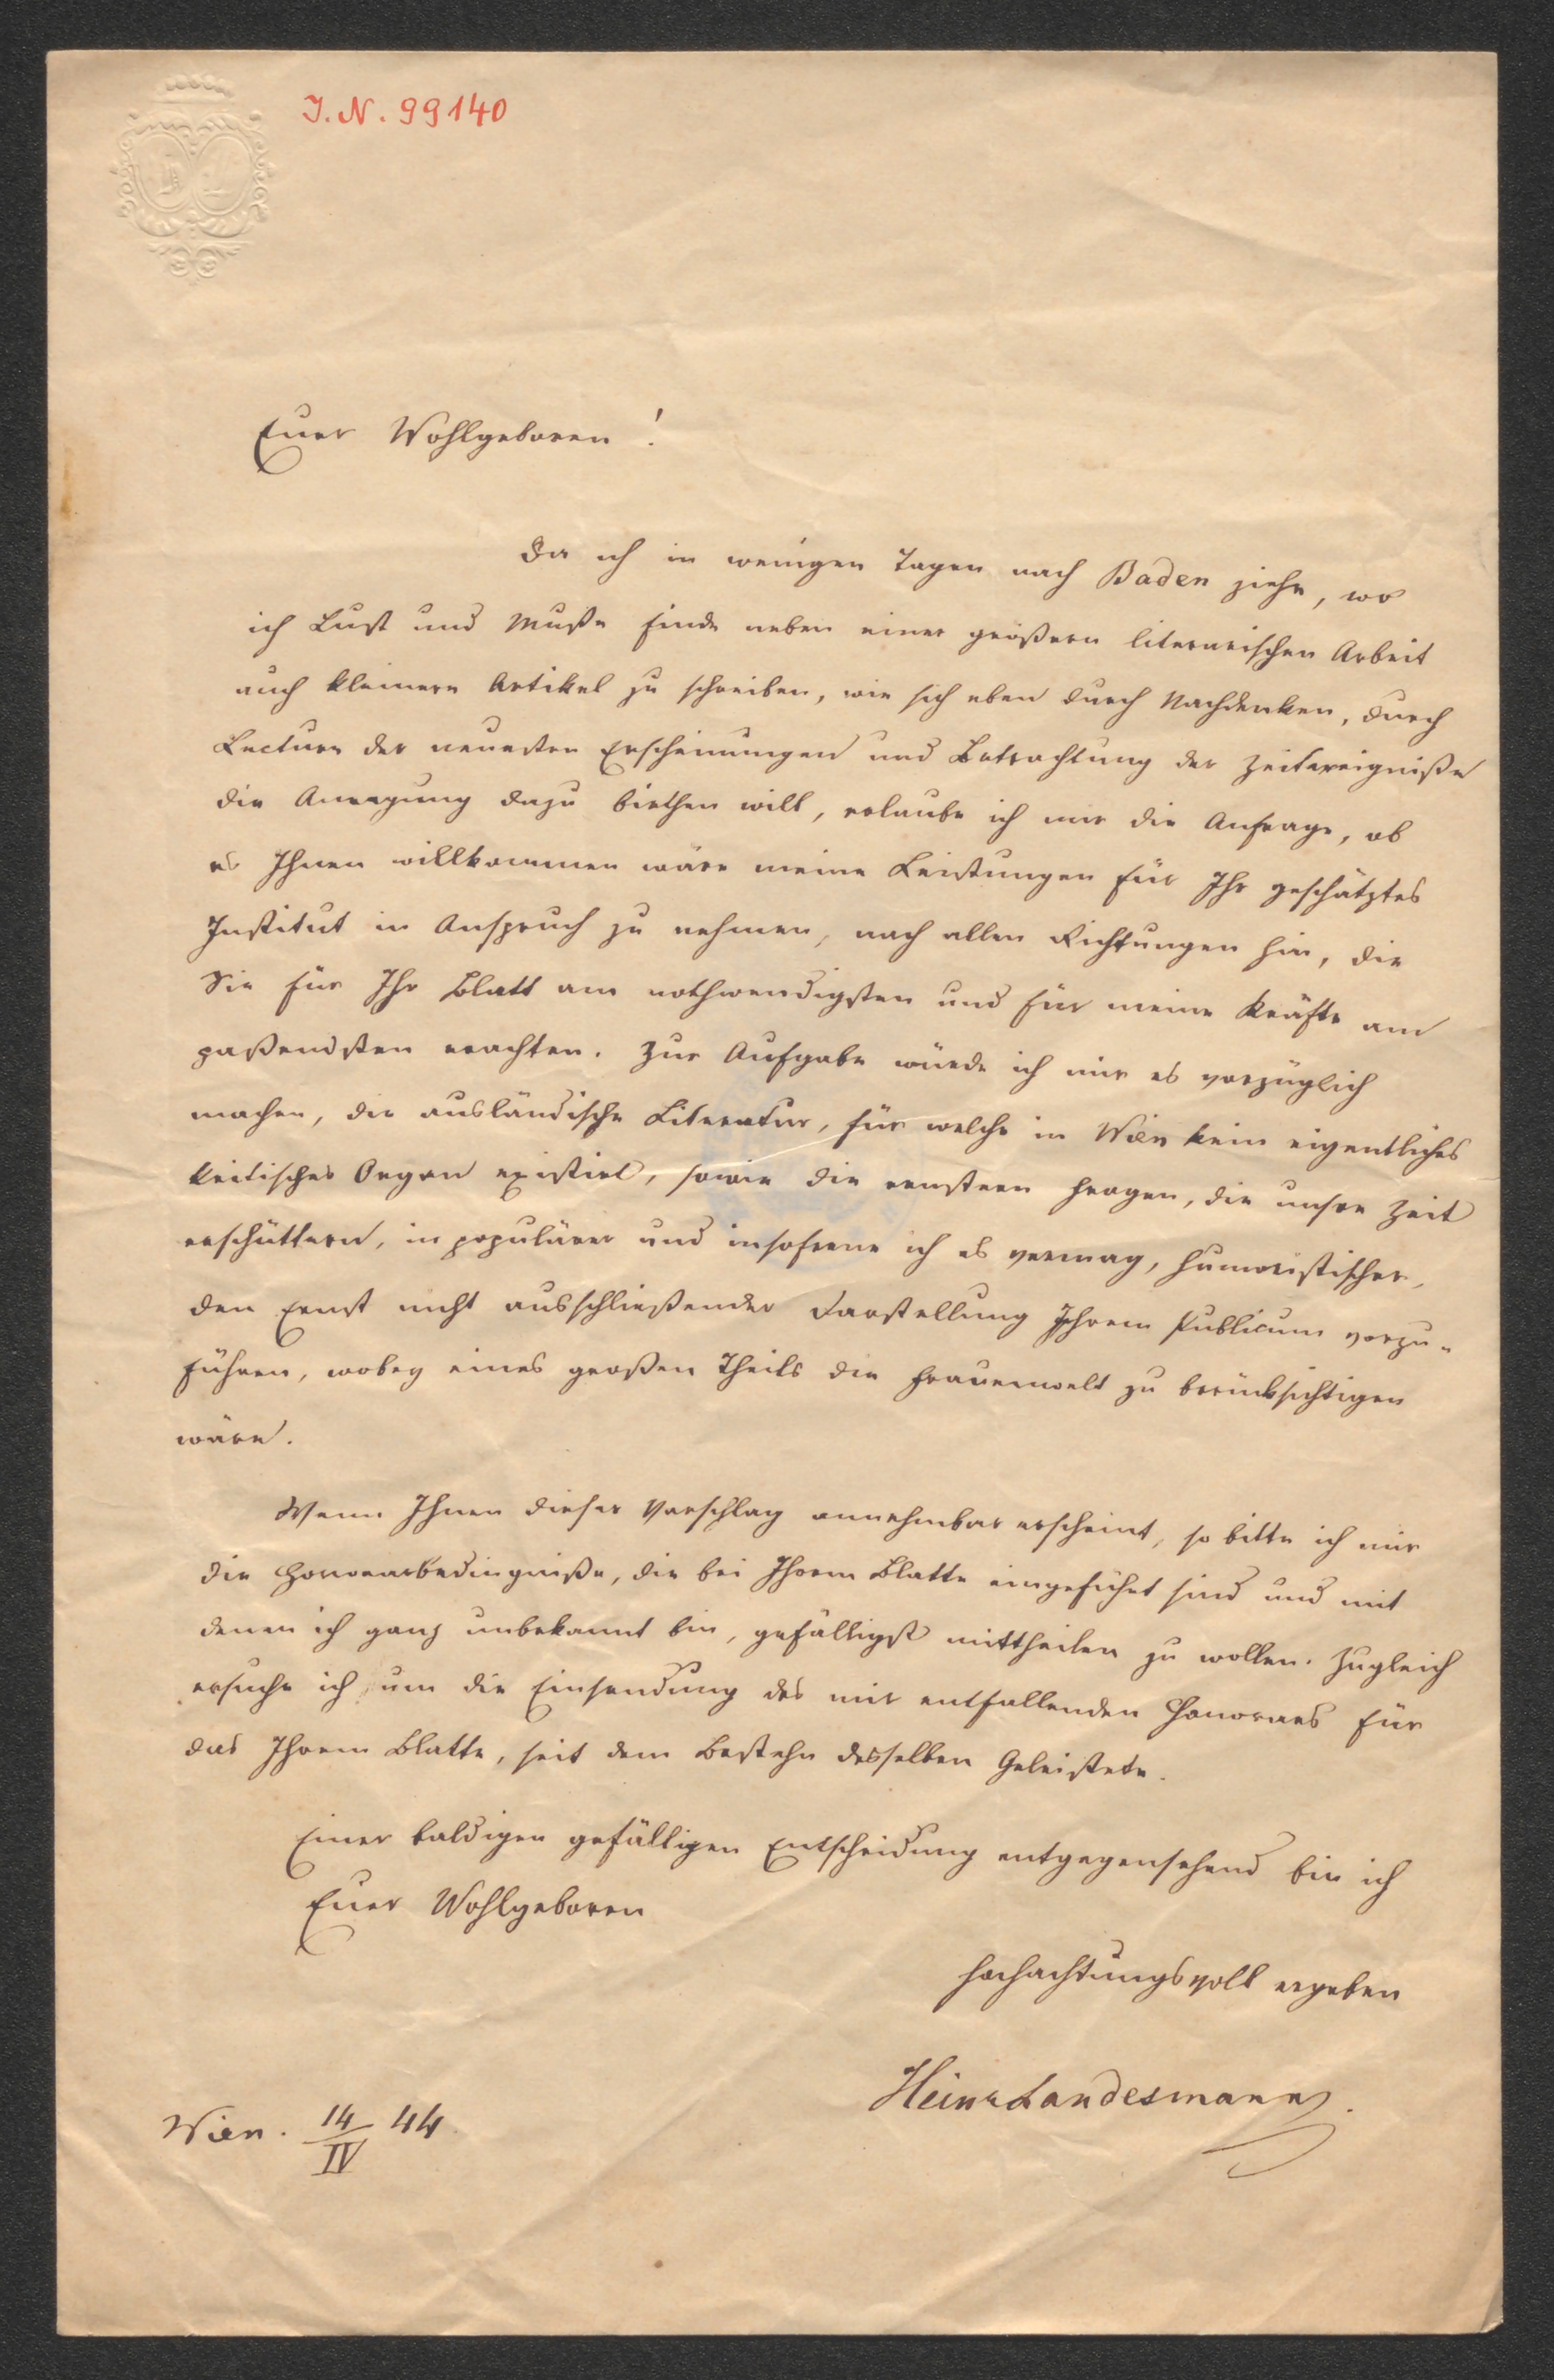 I. N. 99140
Euer Wohlgeboren!
Da ich in wenigen Tagen nach Baden ziehe, wo
ich Lust und Muße finde neben einer größern literarischen Arbeit
auch kleinere Artikel zu schreiben, wie sich eben durch Nachdenken, durch
Lecture der neuesten Erscheinungen und Betrachtung der Zeitereigniße
die Anregung dazu biethen will, erlaube ich mir die Anfrage, ob
es Ihnen willkommen wäre meine Leistungen für Ihr geschätztes
Institut in Anspruch zu nehmen, nach allen Richtungen hin, die
Sie für Ihr Blatt am nothwendigsten und für meine Kräfte am
paßendsten erachten. Zur Aufgabe würde ich mir es vorzüglich
machen, die ausländische Literatur, für welche in Wien kein eigentliches
kritisches Organ existirt, sowie die ernstern Fragen, die unsre Zeit
erschüttern, in populärer und insoferne ich es vermag, humoristischer,
den Ernst nicht ausschließender Darstellung Ihrem Publicum vorzu-
führen, wobey eines großen Theils die Frauenwelt zu berücksichtigen
wäre.
Wenn Ihnen dieser Vorschlag annehmbar erscheint, so bitte ich mir
die Honorarbedingniße, die bei Ihrem Blatte eingeführt sind und mit
denen ich ganz unbekannt bin, gefälligst mittheilen zu wollen. Zugleich
ersuche ich um die Einsendung des mir entfallenden Honorars für
das Ihrem Blatte, seit dem Bestehn desselben Geleistete.
Einer baldigen gefälligen Entscheidung entgegensehend bin ich
Euer Wohlgeboren
hochachtungsvoll ergeben
Heinr Landesmann.
Wien. 14/IV 44.